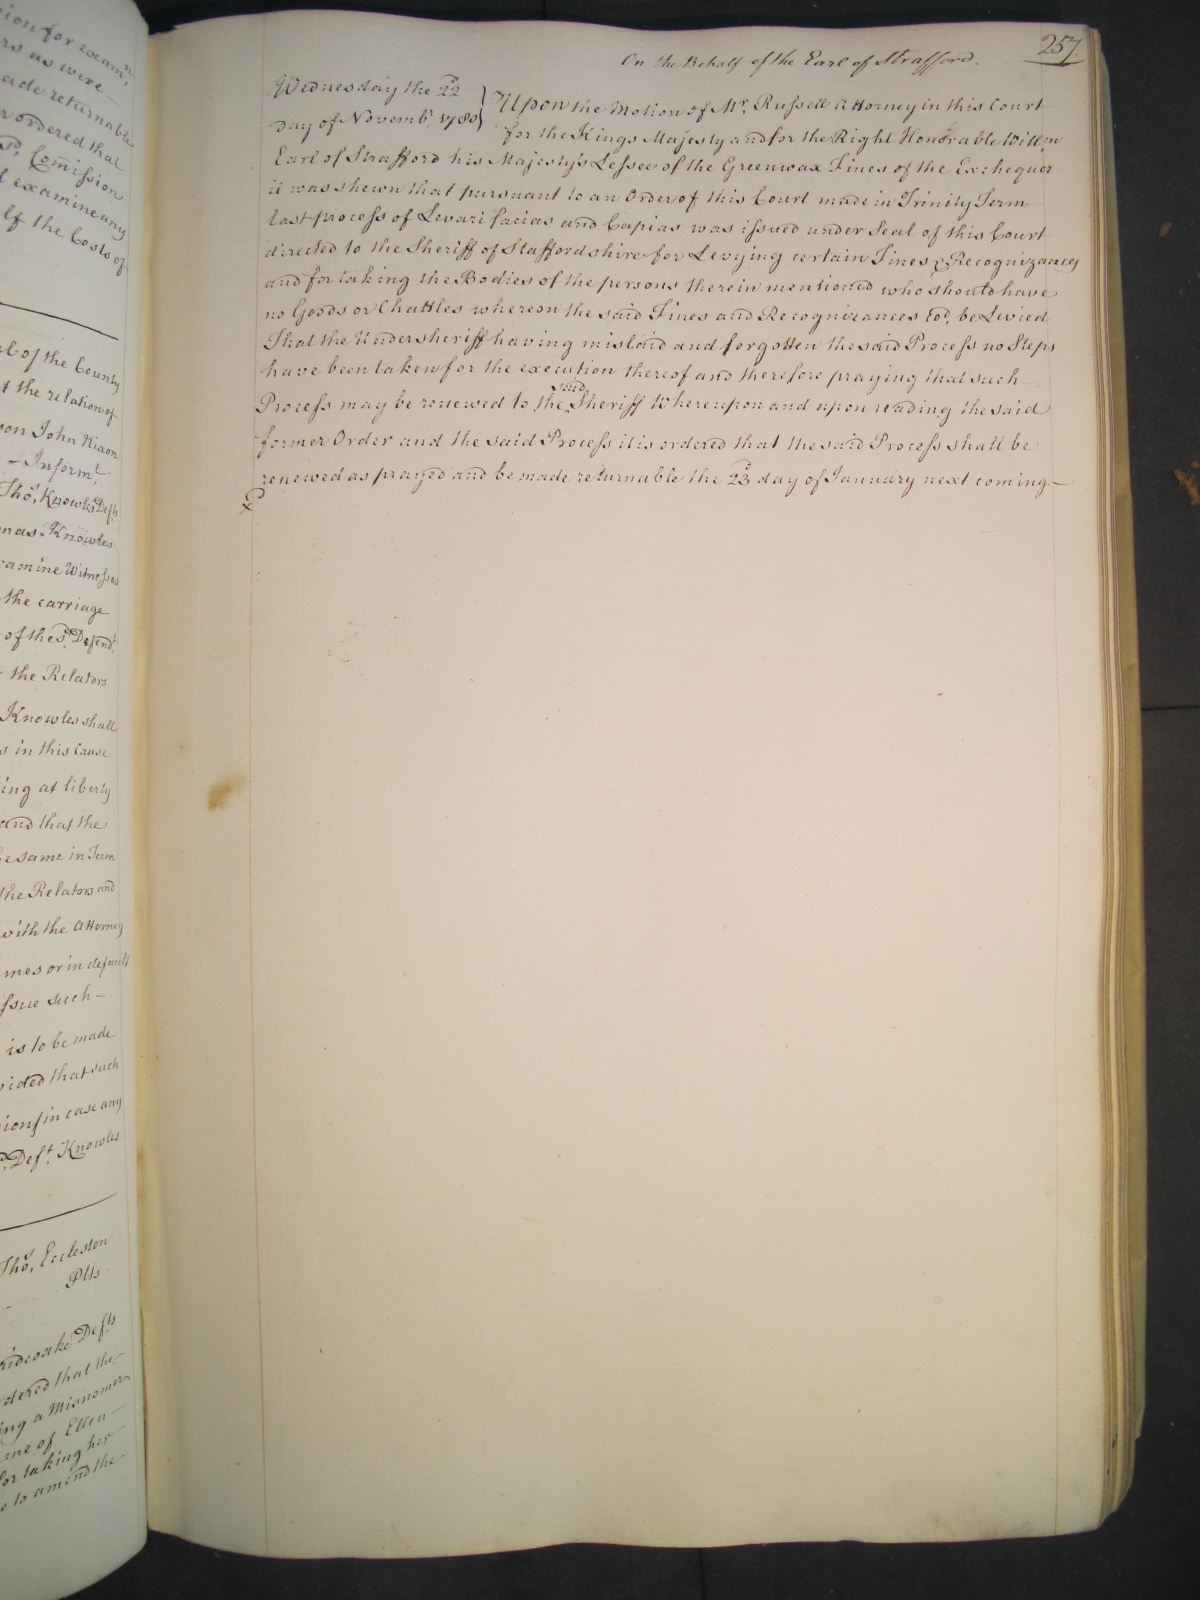 ion for exam.n
rs as were
ade returnable
r ordered that
s.d Com̃ission
d examine any
lf the Costs of
al of the County
at the relation of
son John Nixon
Inform.t
Tho.s Knowles Def.t
mas Knowles
xamine Witnesses
the carriage
of the s.d Defend.t
the Relators
Knowles shall
s in this Cause
ing at liberty
and that the
he same in Term
the Relators and
with the Attorney
mes or in default
ssue such
is to be made
vided that such
in case any
Def.t Knowles
Tho.s Eccleston
Plts
rideoake Def.ts
dered that the
ing a Misnomer
me of Ellen
for taking her
e to amend the
257.
On the Behalf of the Earl of Strafford.
Wednesday the 22.d
day of Novemb.r 1780
Upon the Motion of M.r Russell Attorney in this Court
for the Kings Majesty and for the Right Honorable Will.m
Earl of Strafford his Majesty's Lessee of the Greenwax Fines of the Exchequer
it was shewn that pursuant to an Order of this Court made in Trinity Term
last process of Levari facias and Capias was issued under Seal of this Court
directed to the Sheriff of Staffordshire for Levying certain Fines & Recognizances
and for taking the Bodies of the persons therein mentioned who should have
no Goods or Chattles whereon the said Fines and Recognizances co.d be Levied
That the Undersheriff having mislaid and forgotten the said Process no Steps
have been taken for the execution thereof and therefore praying that such
Process may be renewed to the said Sheriff Whereupon and upon reading the said
former Order and the said Process it is ordered that the said Process shall be
renewed as prayed and be made returnable the 23.d day of January next coming